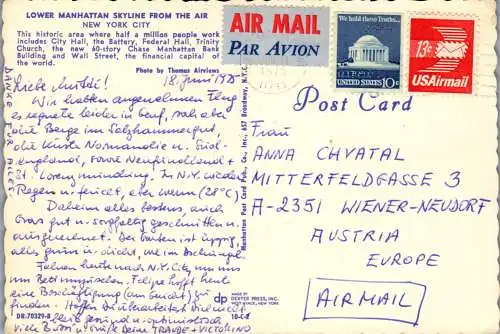 LOWER MANHATTAN SKYLINE FROM THE AIR
NEW YORK CITY
This historic area where half a million people work
includes City Hall, the Battery, Federal Hall, Trinity
Church, the new 60-story Chase Manhattan Bank
Building and Wall Street, the financial capital of
the world.
Photo by Thomas Airviews
AIR MAIL
PAR AVION
We hold these Truths...
UNITED STATES 10c
13c
USAirmail
Post Card
18. Juni 1975
Liebe Mutti!
Wir hatten angenehmen Flug
es regnete leider in Genf, sah aber
die Berge im Salzkammergut,
die Küste Normandie u. Süd-
englands, sowie Neufundland +
St. Lorenzmündung. In N.Y. wieder
Regen u. feucht, aber warm (28°C)
Daheim alles bestens, auch
Gras gut u. sorgfältig geschnitten u.
ausgerechnet. Der Garten ist üppig,
alles grün u. dicht, wie im Dschungel.
Fahren heute nach N.Y. City, um uns
um Felipe hofft heute
eine Beschäftigung (am
zu finden. Hoffen
gesund u.
Viele Bussi u. Grüße Deine TRAUDE + VICTORINO
DANKE FÜR ALLES
Manhattan Post Card Pub. Co., Inc., 637 Broadway, N.Y.C.
FRAU
ANNA CHVATAL
MITTERFELDGASSE 3
A-2351 WIENER-NEUDORF
AUSTRIA
EUROPE
AIRMAIL
DR-70329-B
dp
MADE BY
DEXTER PRESS, INC.
WEST NYACK, NEW YORK